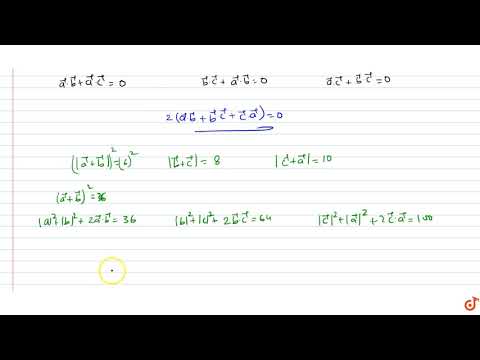 a⃗·b⃗+a⃗·c⃗=0 b⃗c⃗+a⃗·b⃗=0 a⃗c⃗+b⃗c⃗=0
2(a⃗b⃗+b⃗c⃗+c⃗a⃗)=0
(|a⃗+b⃗|)²=(6)² |b⃗+c⃗|=8 |c⃗+a⃗|=10
(a⃗+b⃗)²=36
|a|²+|b|²+2a⃗·b⃗=36 |b|²+|c|²+2b⃗·c⃗=64 |c⃗|²+|a⃗|²+2c⃗·a⃗=100